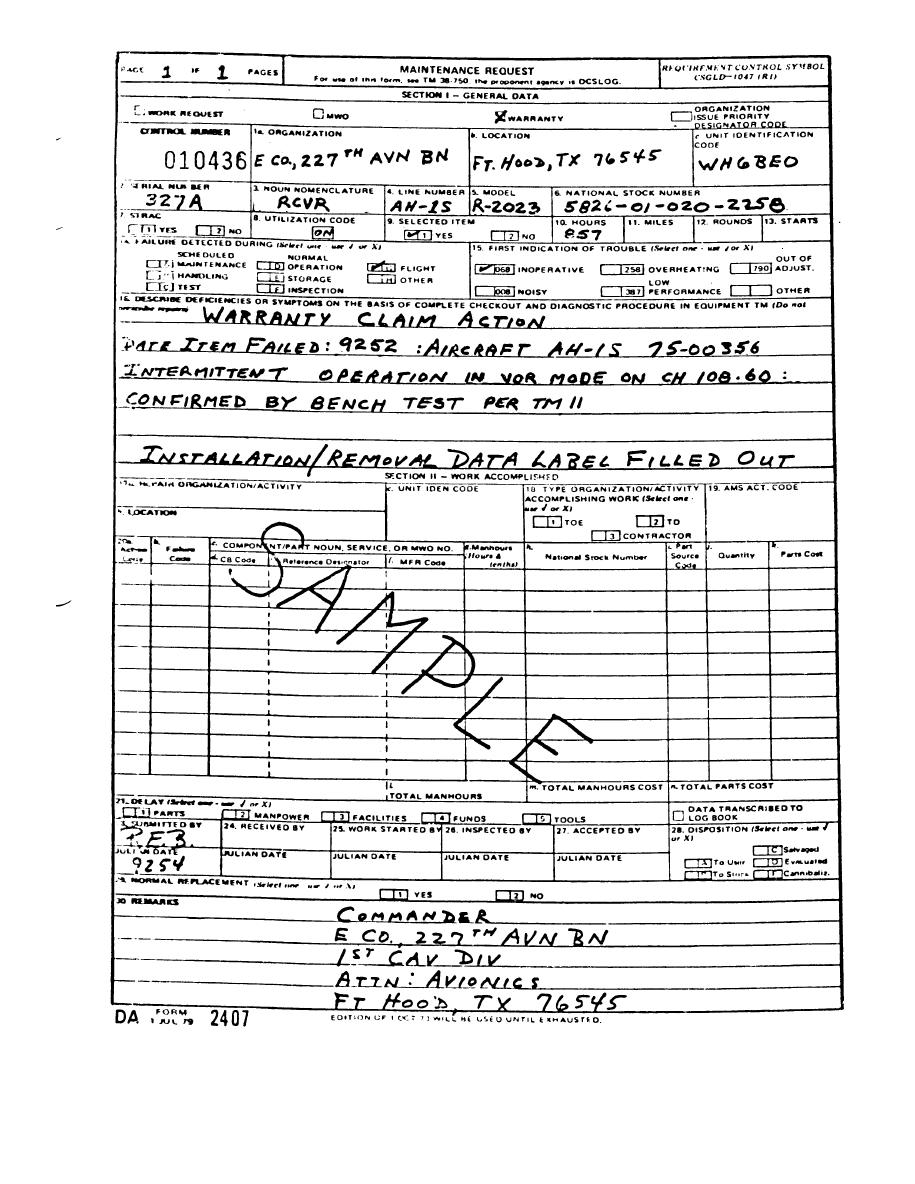 PAGE 1 OF 1 PAGES
MAINTENANCE REQUEST
For use of this form, see TM 38-750, the proponent agency is DCSLOG.
REQUIREMENT CONTROL SYMBOL
CSGLD-1047 (R1)
SECTION I - GENERAL DATA
WORK REQUEST
MWO
WARRANTY
ORGANIZATION
ISSUE PRIORITY
DESIGNATOR CODE
CONTROL NUMBER
010436
1a. ORGANIZATION
E CO, 227TH AVN BN
b. LOCATION
FT. HOOD, TX 76545
c. UNIT IDENTIFICATION
CODE
WHGBEO
2. SERIAL NUMBER
327A
3. NOUN NOMENCLATURE
RCVR
4. LINE NUMBER
AH-1S
5. MODEL
R-2023
6. NATIONAL STOCK NUMBER
5826-01-020-2258
7. STRAC
1 YES 2 NO
8. UTILIZATION CODE
ON
9. SELECTED ITEM
1 YES 2 NO
10. HOURS
857
11. MILES
12. ROUNDS
13. STARTS
14. FAILURE DETECTED DURING (Select one - use √ or X)
SCHEDULED
MAINTENANCE
HANDLING
C TEST
NORMAL
D OPERATION
E STORAGE
F INSPECTION
G FLIGHT
H OTHER
15. FIRST INDICATION OF TROUBLE (Select one - use √ or X)
068 INOPERATIVE
258 OVERHEATING
790 OUT OF ADJUST.
008 NOISY
387 LOW PERFORMANCE
OTHER
16. DESCRIBE DEFICIENCIES OR SYMPTOMS ON THE BASIS OF COMPLETE CHECKOUT AND DIAGNOSTIC PROCEDURE IN EQUIPMENT TM (Do not
WARRANTY CLAIM ACTION
DATE ITEM FAILED: 9252 : AIRCRAFT AH-1S 75-00356
INTERMITTENT OPERATION IN VOR MODE ON CH 108.60 :
CONFIRMED BY BENCH TEST PER TM 11
INSTALLATION/REMOVAL DATA LABEL FILLED OUT
SECTION II - WORK ACCOMPLISHED
17a. REPAIR ORGANIZATION/ACTIVITY
c. UNIT IDEN CODE
18 TYPE ORGANIZATION/ACTIVITY
ACCOMPLISHING WORK (Select one -
use √ or X)
1 TOE 2 TD
3 CONTRACTOR
19. AMS ACT. CODE
b. LOCATION
20a. Action Code
b. Failure Code
c. COMPONENT/PART NOUN, SERVICE, OR MWO NO.
d. CB Code
e. Reference Designator
f. MFR Code
g. Manhours (Hours & tenths)
h. National Stock Number
i. Part Source Code
j. Quantity
k. Parts Cost
SAMPLE
l. TOTAL MANHOURS
m. TOTAL MANHOURS COST
n. TOTAL PARTS COST
21. DELAY (Select one - use √ or X)
1 PARTS 2 MANPOWER 3 FACILITIES 4 FUNDS 5 TOOLS
DATA TRANSCRIBED TO
LOG BOOK
23. SUBMITTED BY
R.E.B.
JULIAN DATE
9254
24. RECEIVED BY
JULIAN DATE
25. WORK STARTED BY
JULIAN DATE
26. INSPECTED BY
JULIAN DATE
27. ACCEPTED BY
JULIAN DATE
28. DISPOSITION (Select one - use √
or X)
C Salvaged
A To User D Evacuated
To Stock Cannibaliz.
29. NORMAL REPLACEMENT (Select one - use √ or X)
1 YES 2 NO
30 REMARKS
COMMANDER
E CO., 227TH AVN BN
1ST CAV DIV
ATTN: AVIONICS
FT HOOD, TX 76545
DA FORM 1 JUL 79 2407
EDITION OF 1 OCT 73 WILL BE USED UNTIL EXHAUSTED.